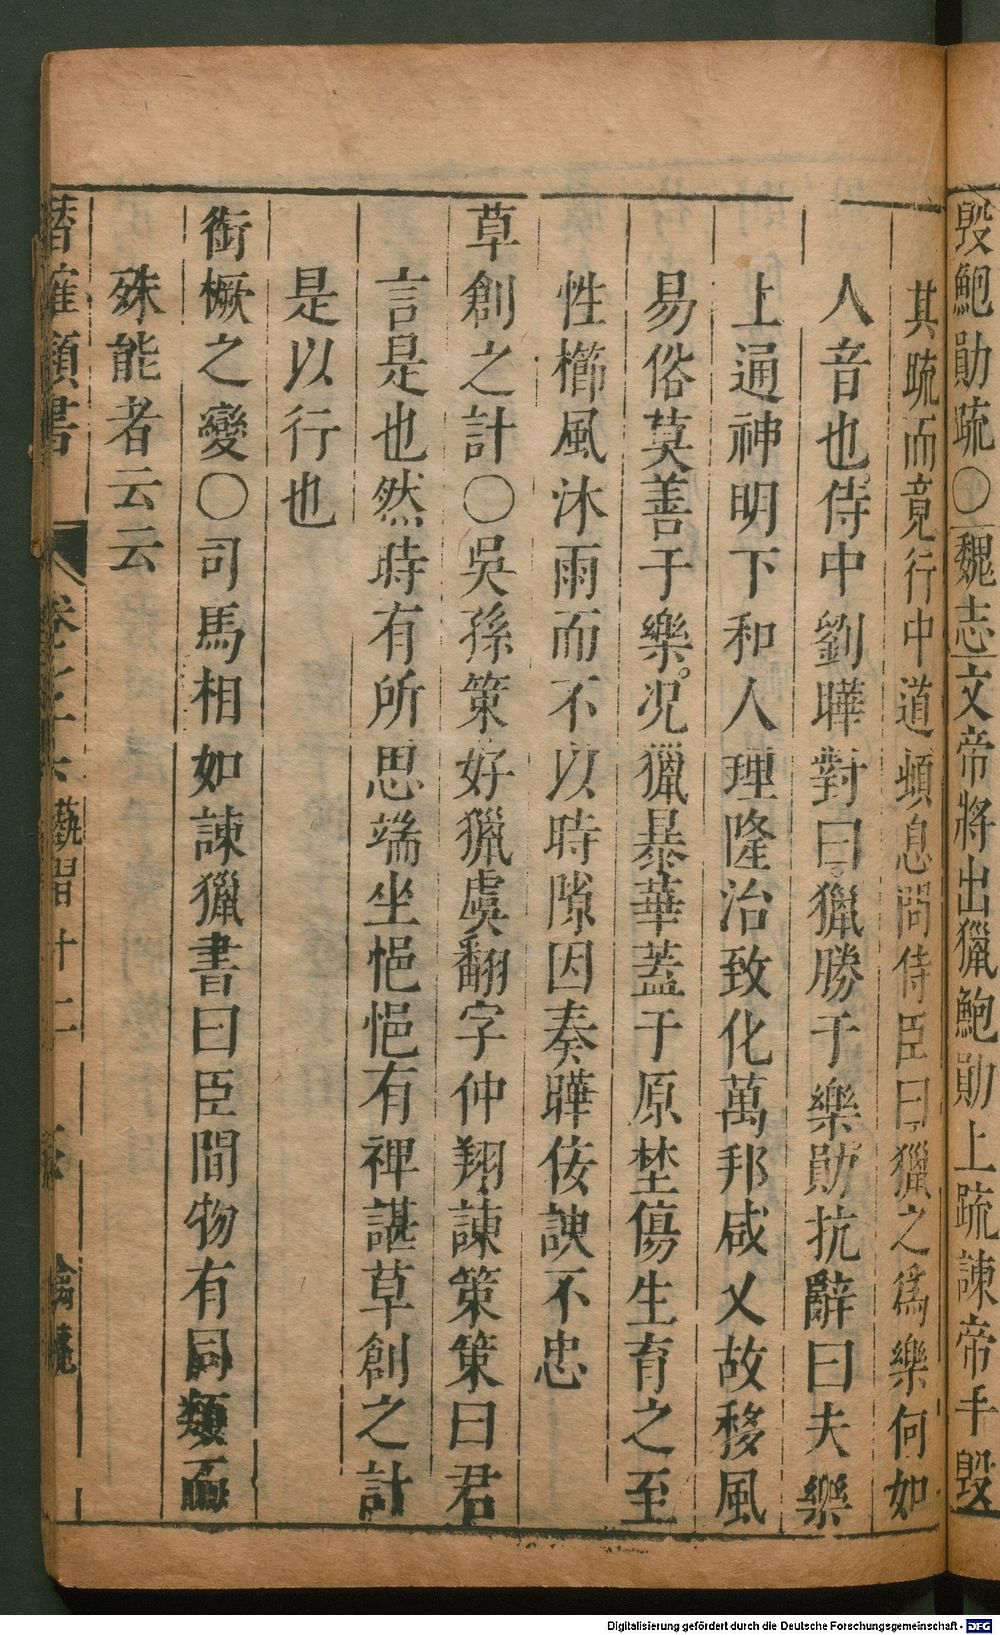 毁鮑勛疏○魏志文帝將出獵鮑勛上疏諫帝手毁
其疏而竟行中道頓息問侍臣曰獵之為樂何如
人音也侍中劉曄對曰獵勝于樂勛抗辭曰夫樂
上通神明下和人理隆治致化萬邦咸乂故移風
易俗莫善于樂。况獵暴華蓋于原埜傷生育之至
性櫛風沐雨而不以時隙因奏曄佞諛不忠
草創之計○吳孫策好獵虞翻字仲翔諫策策曰君
言是也然時有所思端坐悒悒有裨諶草創之計
是以行也
銜橛之變○司馬相如諫獵書曰臣聞物有同類而
殊能者云云
潛確類書
Digitalisierung gefördert durch die Deutsche Forschungsgemeinschaft - DFG